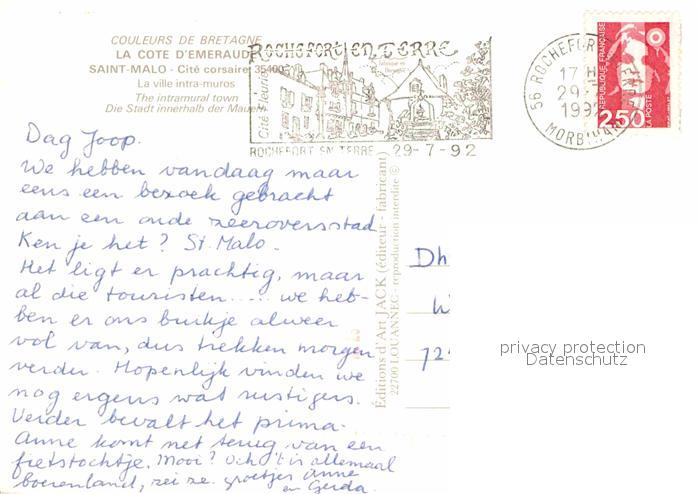 COULEURS DE BRETAGNE
LA COTE D'EMERAUDE
SAINT-MALO - Cité corsaire 35400
La ville intra-muros
The intramural town
Die Stadt innerhalb der Mauern
ROCHEFORT EN TERRE
Cité Fleurie
ROCHEFORT EN TERRE 29-7-92
56 ROCHEFORT
17 H
29
1992
MORBIHAN
REPUBLIQUE FRANÇAISE
LA POSTE
2,50
Dag Joop.
We hebben vandaag maar
eens een bezoek gebracht
aan een oude zeeroversstad
Ken je het? St. Malo.
Het ligt er prachtig, maar
al die touristen..... we heb-
ben er ons buikje alweer
vol van, dus trekken morgen
verder. Hopenlijk vinden we
nog ergens wat rustigers.
Verder bevalt het prima.
Anne komt net terug van een
fietstochtje. Mooi? Och 't is allemaal
boerenland, zei ze. groetjes Anne
en Gerda.
Editions d'Art JACK (éditeur - fabricant)
22700 LOUANNEC - reproduction interdite ©
Dh
72
privacy protection
Datenschutz